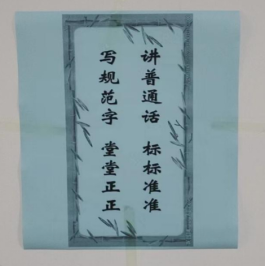 讲普通话 标标准准
写规范字 堂堂正正